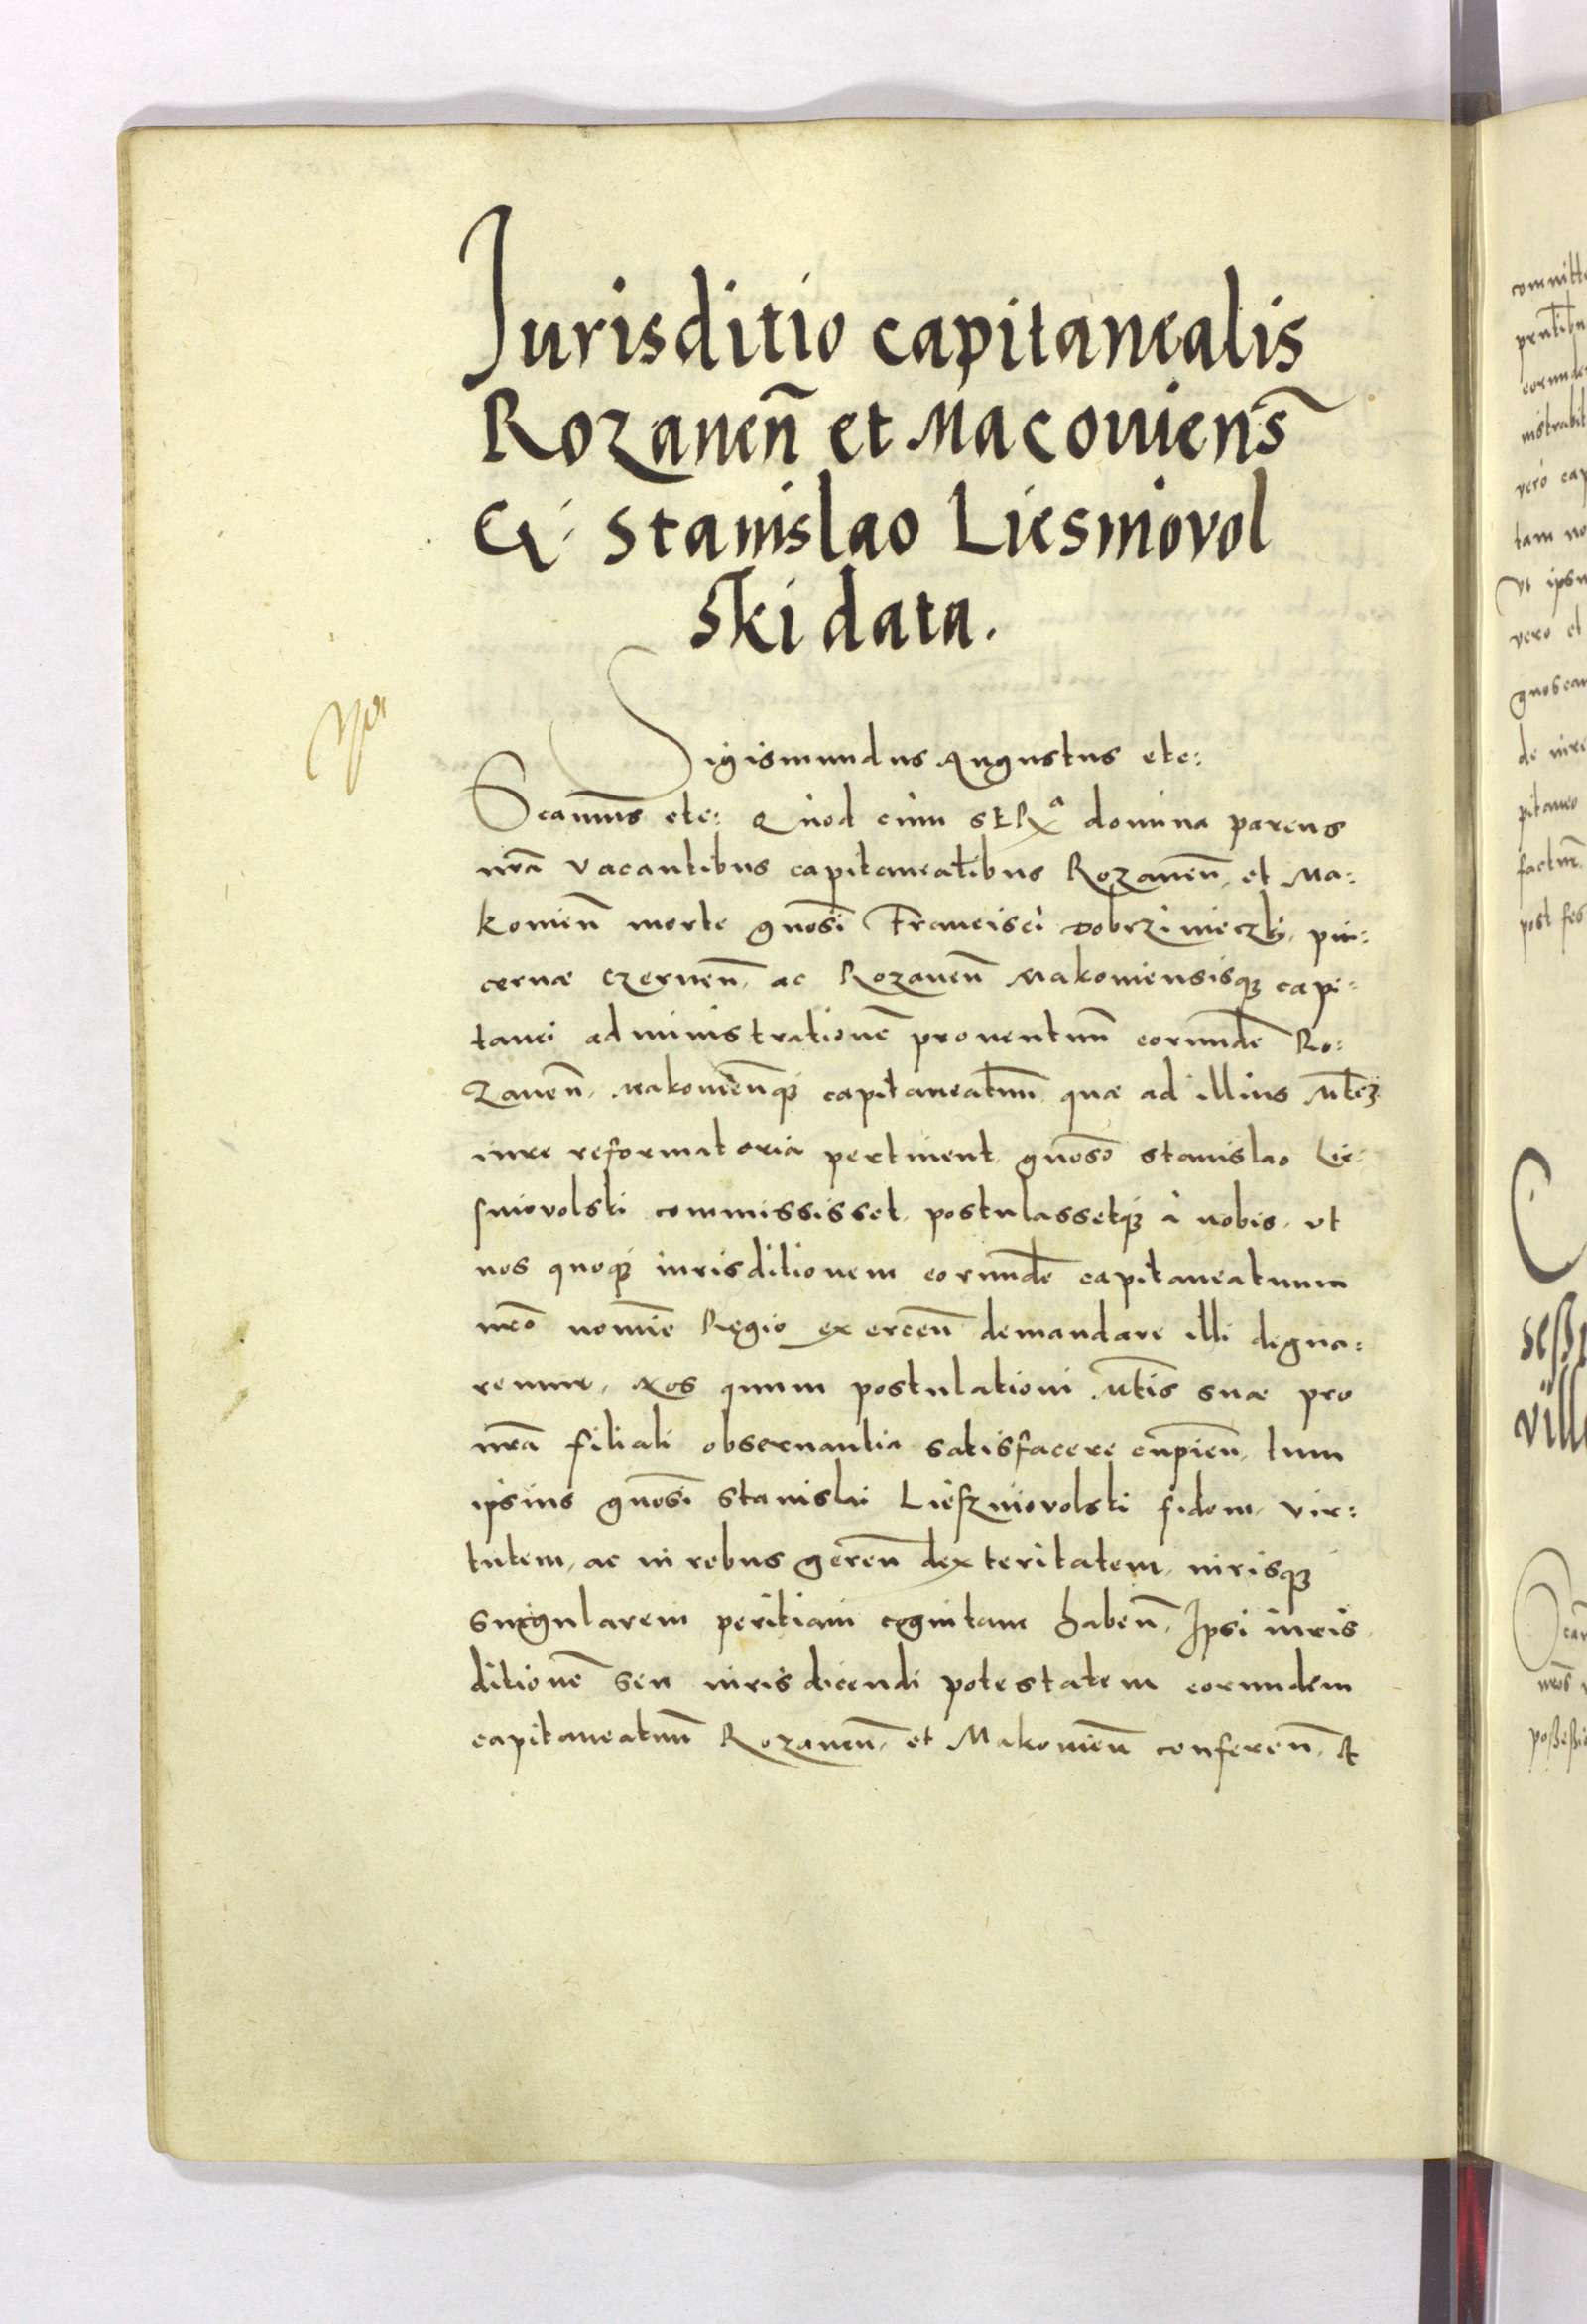 Iurisditio capitanealis
Rozanen̄ et Macouiens̄
G. Stanislao Liesniovol
ski data.
Sigismundus Augustus etc:
Scamus̄ etc: Quod cum S R Mᵃ domina parens
nr̄a vacantibus capitaneatibus Rozanen̄. et Ma:
kouien̄ morte gnosi Francisci Dobrzinieczky, pin:
cernæ Czernen̄. ac Rozanen̄ Makouiensisq3 capi:
tanei administrationē prouentuum eorundē Ro:
zanen̄. Makouienq3 capitaneatuū quæ ad illius Mtez
iure reformatoria pertinent. gnoso Stanislao Lie:
sniovolski commississet. postulassetq3 à nobis. vt
nos quoq3 iurisditionem eorundē capitaneatuum
nr̄o nomīe Regio exercen̄ demandare illi digna:
remur. Nos quum postulationi Mtis suæ pro
nr̄a filiali obseruantia satisfacere cupien̄. tum
ipsius gnosi Stanislai Lieszniovolski fidem, vir:
tutem, ac in rebus geren̄ dexteritatem, iurisq3
singularem peritiam cognitam haben̄. Ipsi iuris
ditionē seu iuris dicendi potestatem eorundem
capitaneatuū Rozanen̄. et Makouien̄ conferen̄. &
committe
vero cap
tam no
vero el
gnoscan
pitaneo
factum
post fes
vill